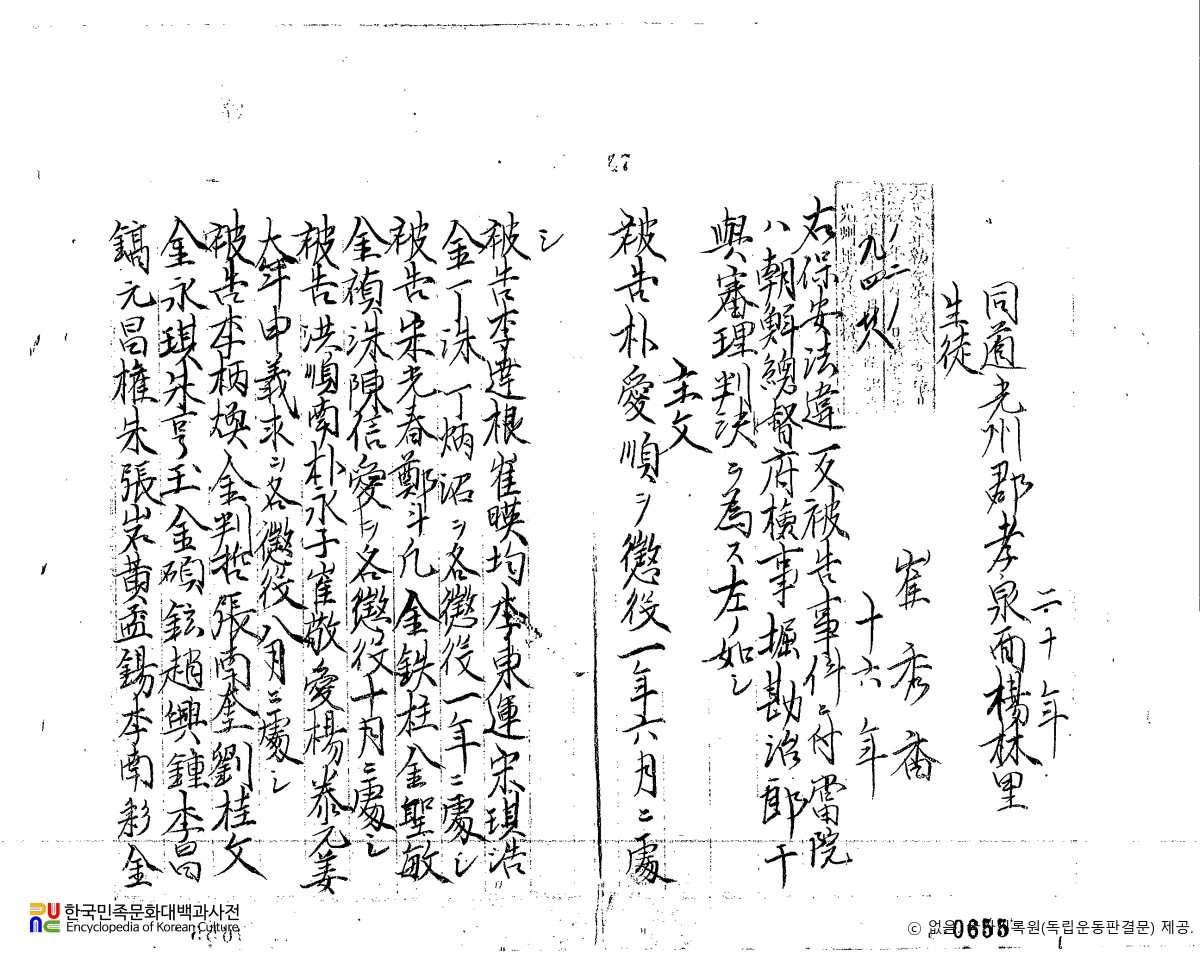 二十年
同道光州郡孝泉面楊林里
生徒
崔秀香
十六年
右保安法違反被告事件ニ付當院
ハ朝鮮總督府檢事堀勘治郎干
與審理判決ヲ為ス左ノ如シ
主文
被告朴愛順ヲ懲役一年六月ニ處
シ
被告李達根崔暎均李東運宋琪浩
金丁洙丁炳沼ヲ各懲役一年ニ處シ
被告朱光春鄭斗凡金鉄柱金聖敏
金禎洙陳信愛ヲ各懲役十月ニ處シ
被告洪順南朴永子崔敬愛楊泰元姜
大年申義求ヲ各懲役八月ニ處シ
被告李柄煥金判哲張南奎劉桂文
金永琪朱亨玉金碩鉉趙興鍾李昌
鎬元昌權朱張岩黃孟錫李南彩金
47
0655
한국민족문화대백과사전
Encyclopedia of Korean Culture
ⓒ 없음 록원(독립운동판결문) 제공.